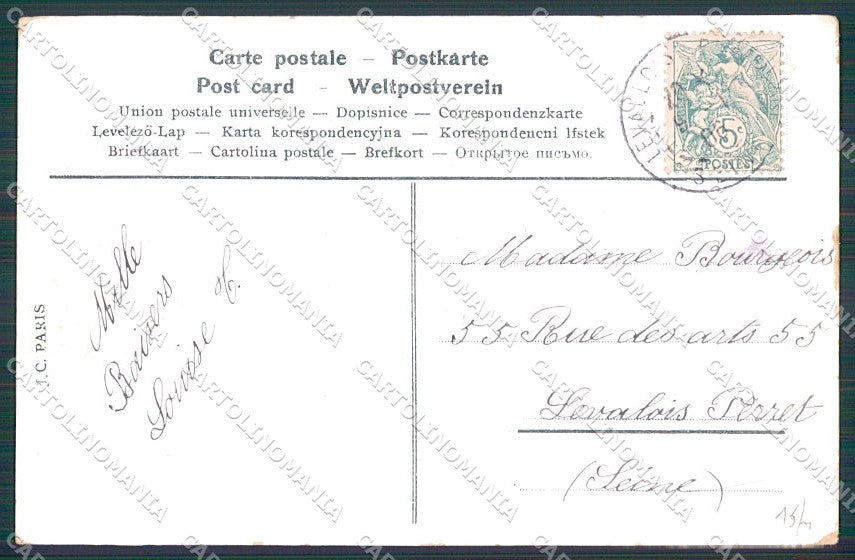 Carte postale – Postkarte
Post card – Weltpostverein
Union postale universelle — Dopisnice — Correspondenzkarte
Levelező-Lap — Karta korespondencyjna — Korespondencni lfstek
Briefkaart — Cartolina postale — Brefkort — Открытое письмо.
5c
POSTES
J.C. PARIS
Mille
Baisers
Louise H.
Madame Bourgeois
55 Rue des arts 55
Levalois Perret
(Seine)
CARTOLINOMANIA